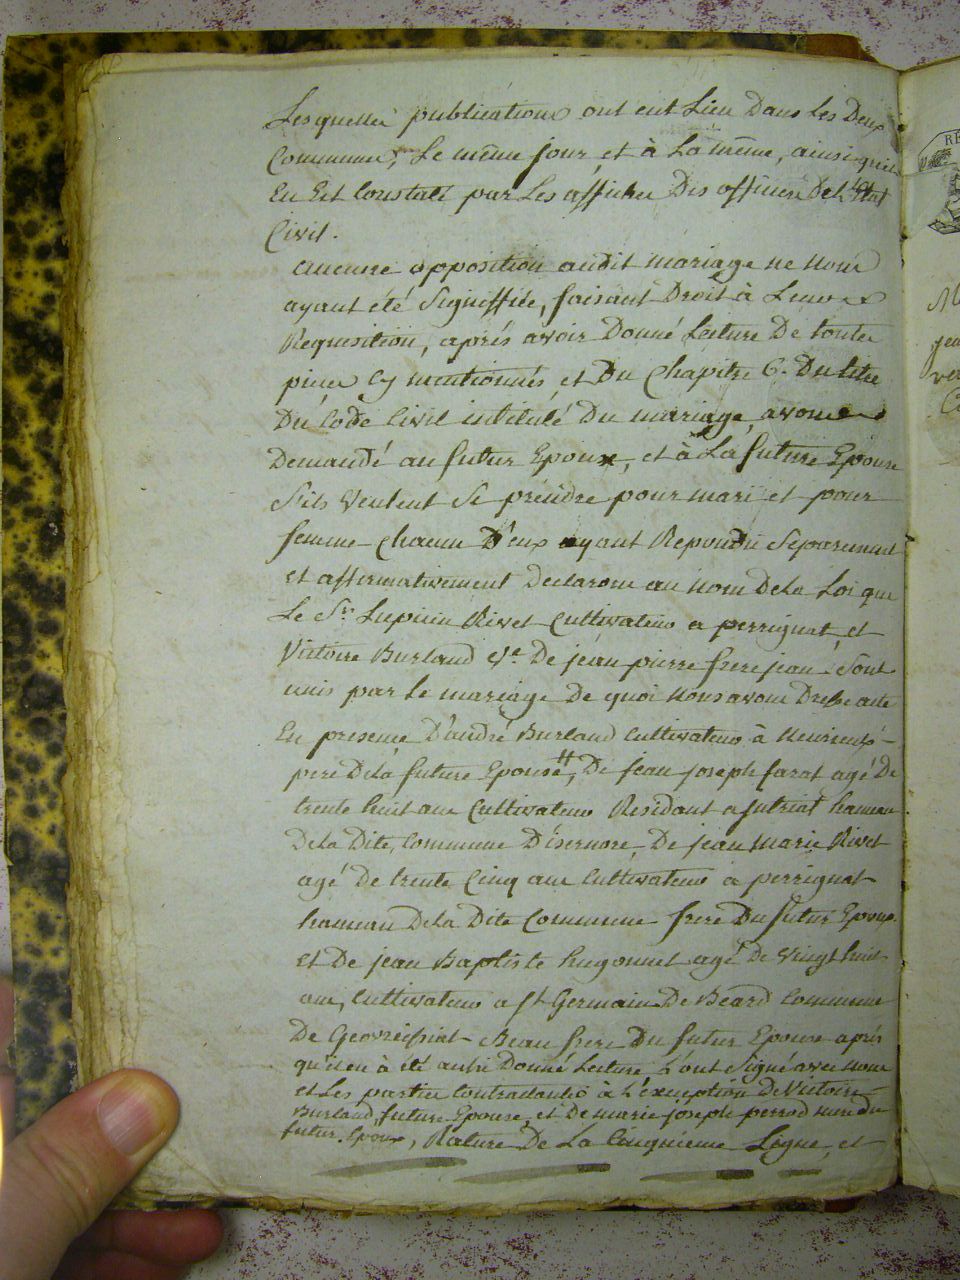 Lesquelles publications ont eut Lieu Dans Les Deux
Communes, Le même jour, et à La même, ainsi quil
En Est Constaté par Les affiches Des officiers De L'Etat
Civil.
aucune opposition audit mariage ne nous
ayant été Signiffiée, faisant Droit à Leurs
Requisition, aprés avoir Donné Lecture De toutes
pieces cy mentionnés et Du Chapitre 6. Du titre
Du Code Civil intitulé Du mariage, avons
Demandé au futur Epoux, et à La future Epouse
S'ils Veulent Se prendre pour mari et pour
femme Chacun D'eux ayant Repondu Separement
et affirmativement Declarons au nom De La Loi que
Le Sr. Lupicin Rivet Cultivateur a perrignat, et
Victoire Burland Ve. De jean pierre frerejean Sont
unis par le mariage De quoi nous avons Dressé acte
En presence D'andré Burland Cultivateur à
pere De La future Epouse, De jean joseph farat agé De
trente huit ans Cultivateur Residant a hameau
De La Dite, Commune D'isernore, De jean marie Rivet
agé De trente Cinq ans Cultivateur a perrignat
hameau De La Dite Commune frere Du futur Epoux
et De jean Baptiste hugonnet agé De Vingt huit
ans, Cultivateur a St Germain De Beard Commune
De Geovreissiat Beau frere Du futur Epoux après
qu'il en à été aussi Donné Lecture L'ont Signé avec nous
et Les parties Contractantes à L'exception De Victoire
Burland future Epouse, et De marie joseph perrod mere Du
futur Epoux, Rature De La Cinquieme Ligne, et